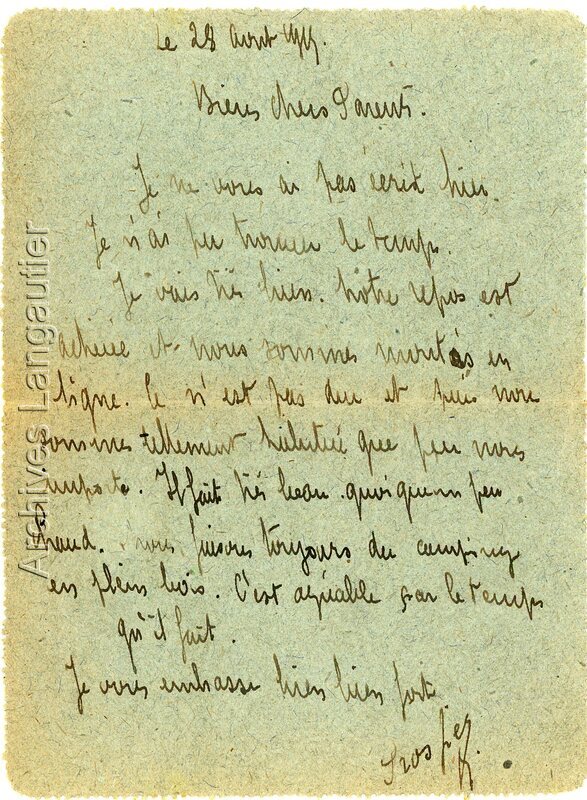 Le 28 avril 1915.
Biens chers Parents.
Je ne vous ai pas ecrit hier.
Je n'ai pu trouver le temps.
Je vais très bien. Notre repos est
achevée et nous sommes montés en
ligne. Ce n'est pas dur et puis nous
sommes tellement habitué que peu nous
importe. Il fait très beau quoique un peu
chaud. nous faisons toujours du camping
en plein bois. C'est agréable par le temps
qu'il fait.
Je vous embrasse bien bien fort
Prosper
Archives Langautier